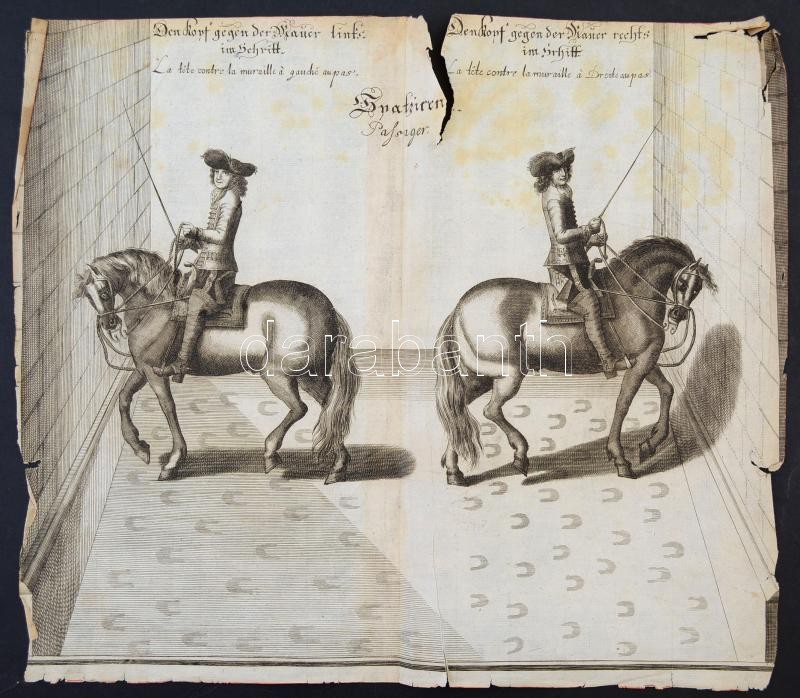 Den Kopf gegen der Mauer links.
im Schritt.
La tête contre la muraille à gauche au pas.
Den Kopf gegen der Mauer rechts
im Schitt
La tête contre la muraille à Droite au pas
Passiger
darabanth